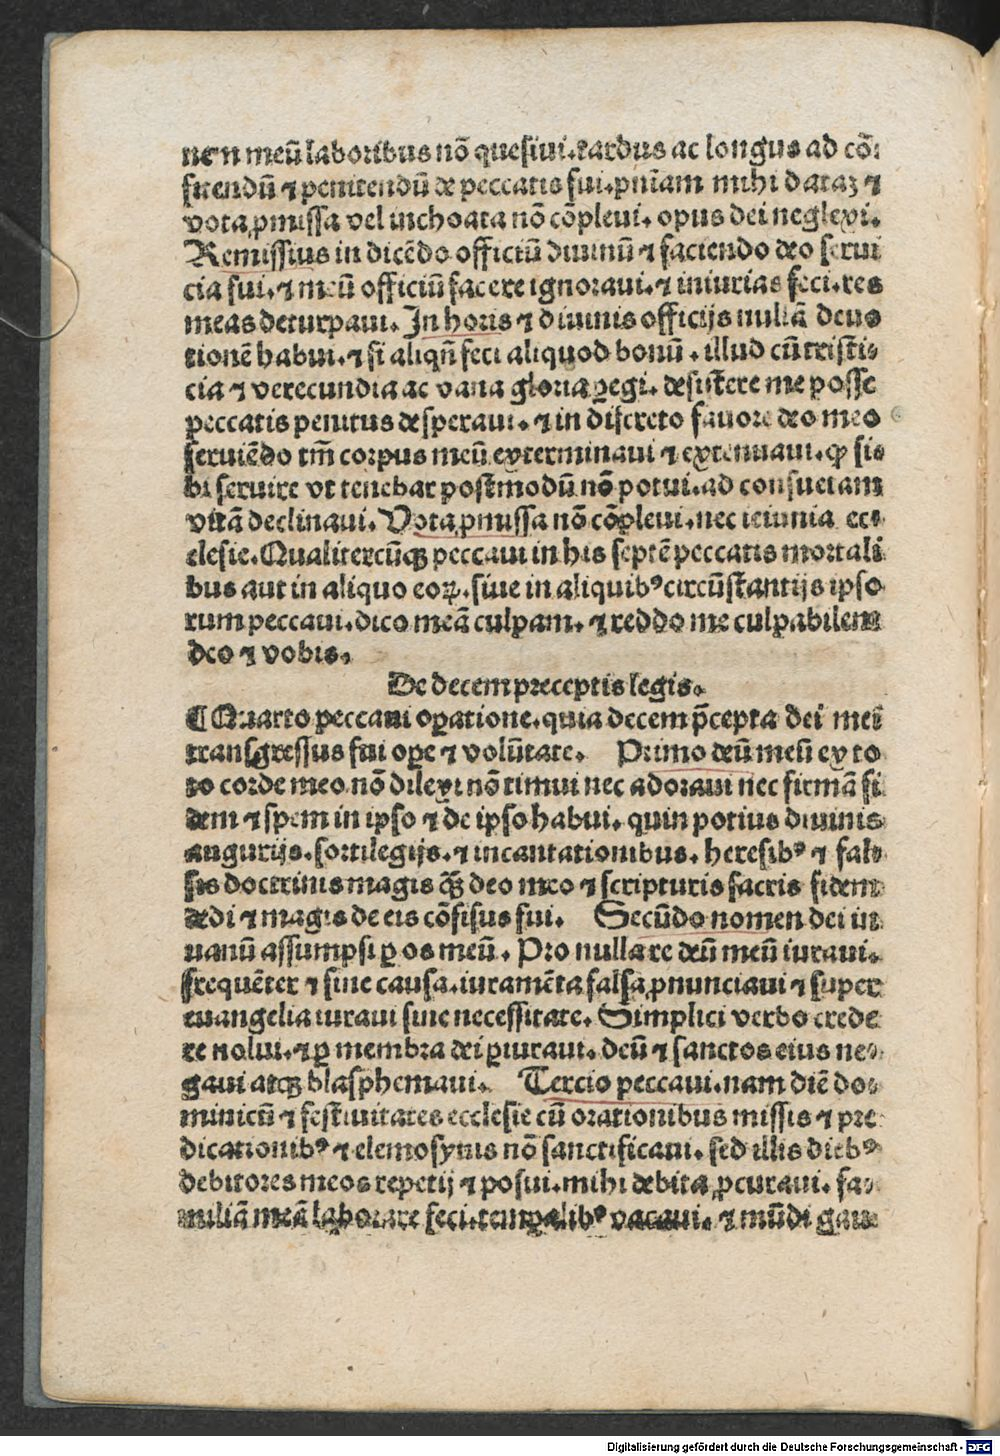 nen meū laboribus nō quesiui. tardus ac longus ad cō⸗
fitendū ⁊ penitendū de peccatis fui. pn̄iam mihi dataꝫ ⁊
vota ꝓmissa vel inchoata nō cōpleui. opus dei neglexi.
Remissius in dicēdo officiū diuinū ⁊ faciendo deo serui
cia fui. ⁊ meū officiū facere ignoraui. ⁊ iniurias feci. res
meas deturpaui. In horis ⁊ diuinis officijs nullā deuo
tionē habui. ⁊ si aliqn̄ feci aliquod bonū. illud cū tristi⸗
cia ⁊ verecundia ac vana gloria ꝑegi. desistere me posse
peccatis penitus desperaui. ⁊ in discreto fauore deo meo
seruiēdo tm̄ corpus meū exterminaui ⁊ extenuaui. ꝙ si⸗
bi seruire vt tenebar postmodū nō potui. ad consuetam
vitā declinaui. Vota ꝓmissa nō cōpleui. nec ieiunia ec⸗
clesie. Qualitercūqꝫ peccaui in his septē peccatis mortali
bus aut in aliquo eoꝝ. siue in aliquibꝰ circūstantijs ipso
rum peccaui. dico meā culpam. ⁊ reddo me culpabilem
deo ⁊ vobis.
De decem preceptis legis.
¶ Quarto peccaui oꝑatione. quia decem p̄cepta dei mei
transgressus fui oꝑe ⁊ volūtate. Primo deū meū ex to
to corde meo nō dilexi nō timui nec adoraui nec firmā fi
dem ⁊ spem in ipso ⁊ de ipso habui. quin potius diuinis
augurijs. sortilegijs. ⁊ incantationibus. heresibꝰ ⁊ fal⸗
sis doctrinis magis q̄ꝫ deo meo ⁊ scripturis sacris fidem
dedi ⁊ magis de eis cōfisus fui. Secūdo nomen dei in
uanū assumpsi ꝑ os meū. Pro nulla re deū meū iuraui.
frequēter ⁊ sine causa. iuramēta falsa ꝓnunciaui ⁊ super
euangelia iuraui sine necessitate. Simplici verbo crede
re nolui. ⁊ ꝑ membra dei ꝑiuraui. deū ⁊ sanctos eius ne⸗
gaui atqꝫ blasphemaui. Tercio peccaui. nam diē do⸗
minicū ⁊ festiuitates ecclesie cū orationibus missis ⁊ pre
dicationibꝰ ⁊ elemosynis nō sanctificaui. sed illis diebꝰ
debitores meos repetij ⁊ posui. mihi debita ꝓcuraui. fa⸗
miliā meā laborare feci. tempalibꝰ vacaui. ⁊ mūdi gau
Digitalisierung gefördert durch die Deutsche Forschungsgemeinschaft - DFG